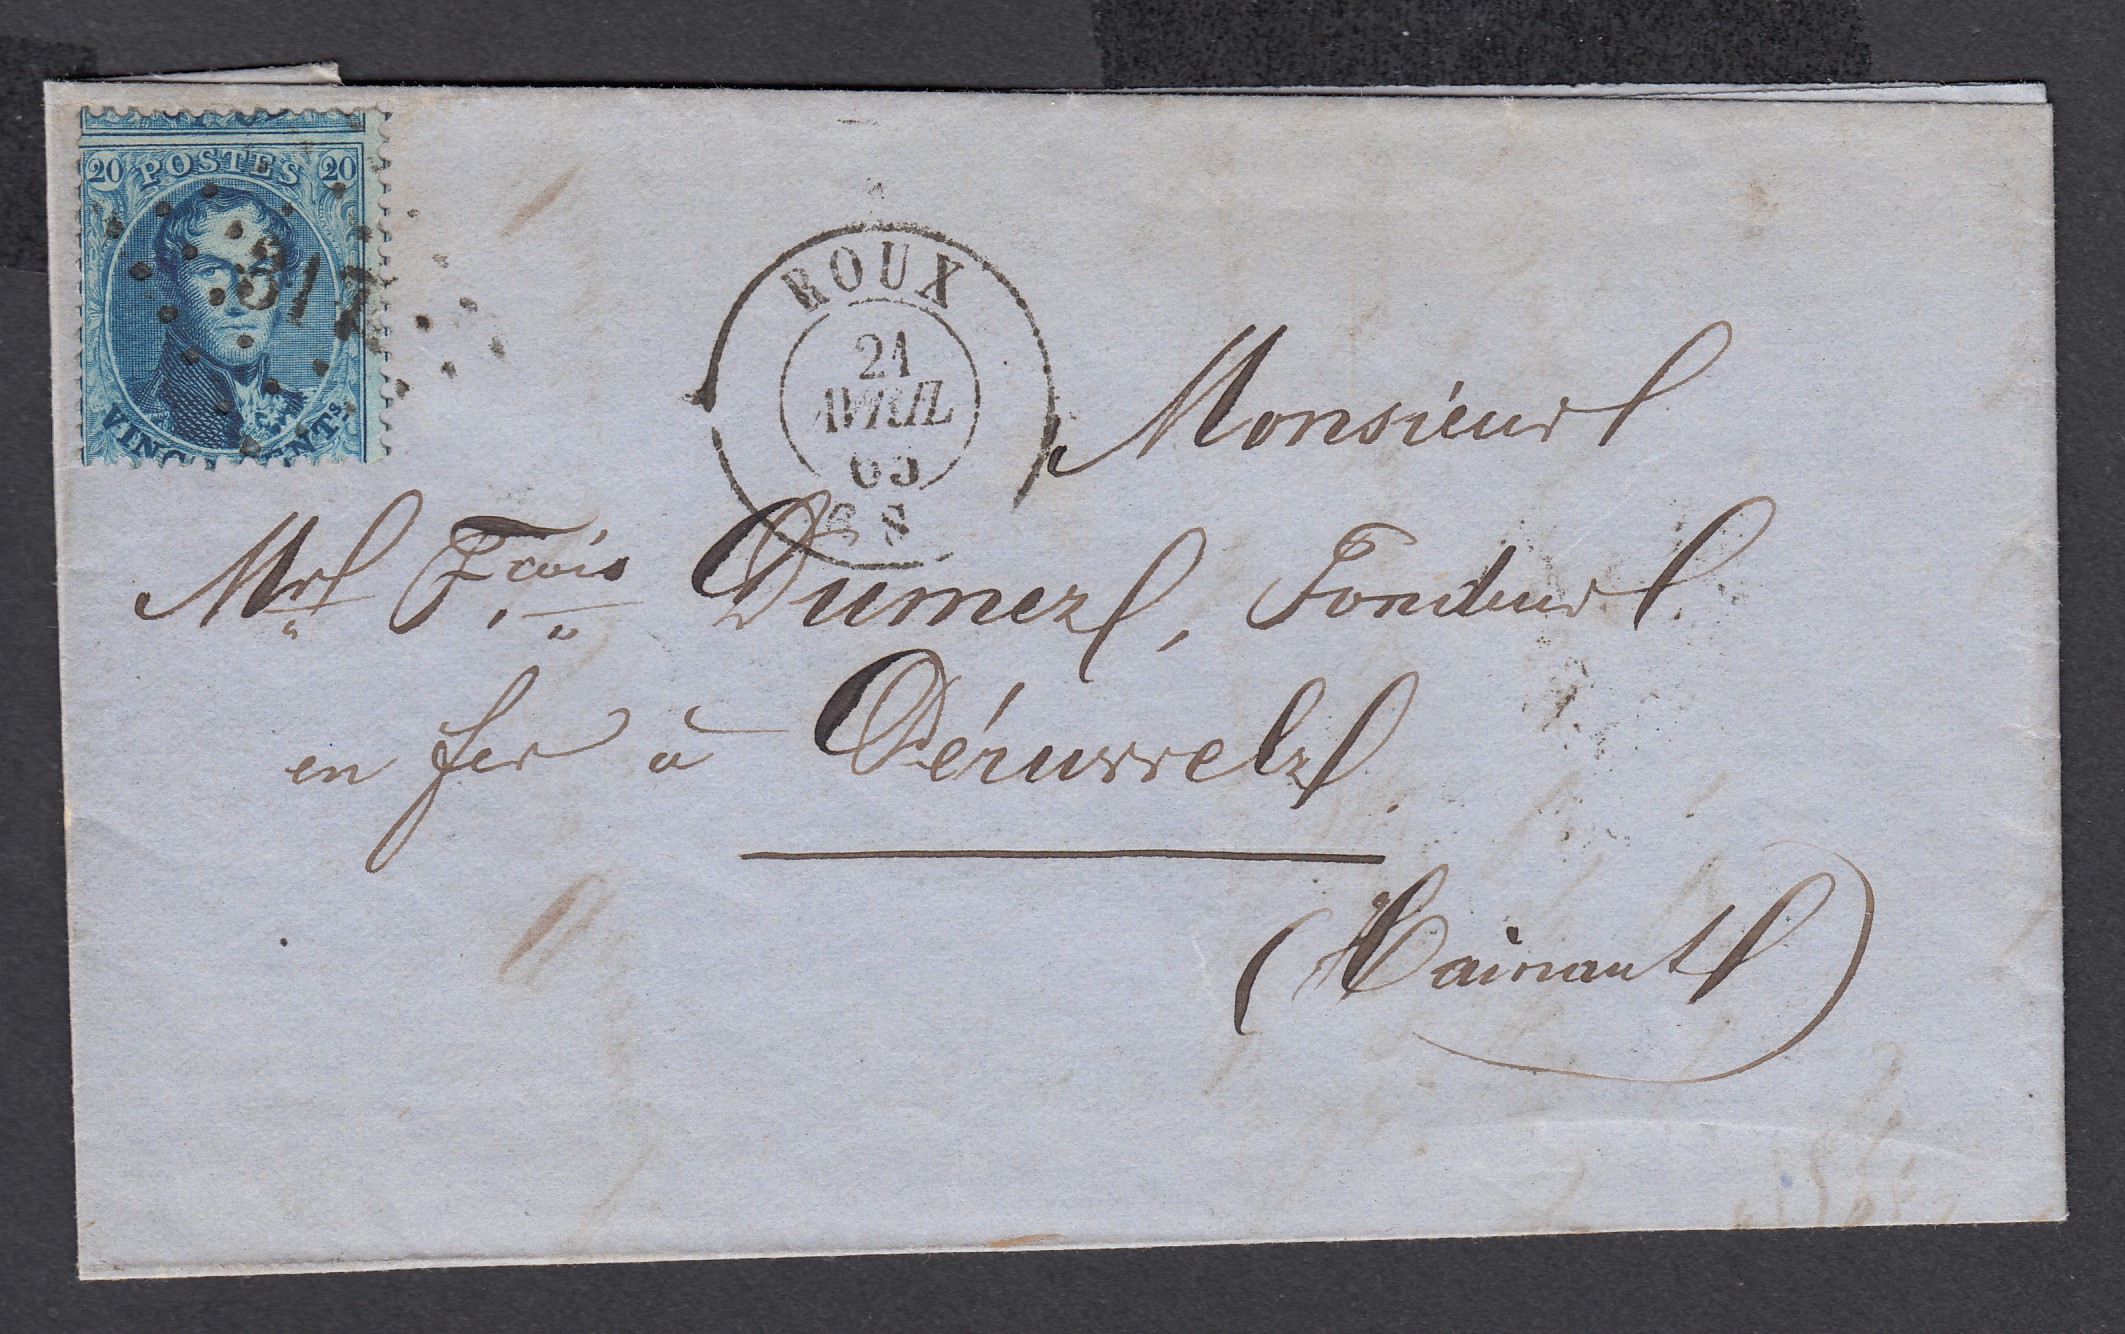 20 POSTES 20
VINGT CENTS
317
ROUX
21
AVRIL
65
6 S
Monsieur
Mr. Fçois Dumez, Fondeur
en fer à Péruwelz.
(Hainaut)